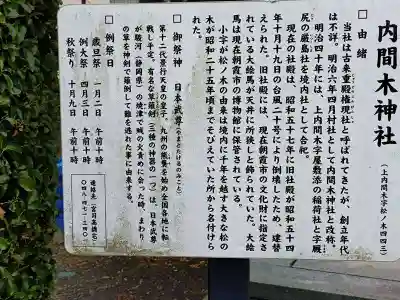 内間木神社
(上内間木字松ノ木四四三)
□ 由緒
当社は古来重殿権現社と呼ばれてきたが、創立年代
は不詳。明治六年四月村社として内間木神社と改称。
明治四十年には、上内間木字屋敷添の稲荷社と字厩
尻の厳島社を境内社として合祀。
現在の社殿は、昭和五十七年に旧社殿が昭和五十四
年十月十九日の台風二十号により倒壊したため、建替
えられた。旧社殿には、現在朝霞市の文化財に指定さ
れている大絵馬が天井に所狭しと飾られていた。大絵
馬は現在朝霞市の博物館に保管されている。
小字が松ノ木の由来は境内に千年を越す大きな松の
木が昭和二十五年頃までそびえていた所から名付けら
れた。
□ 御祭神 日本武尊(やまとたけるのみこと)
第十二代景行天皇の皇子、九州の熊襲を始め全国各地に転
戦し平定。有名な草薙剣(三種の神器の一つ)は、日本武尊
が駿河(静岡県)の焼津で賊の火責めに会った時、まわり
の草を神剣で薙倒して難を逃れた事に由来する。
□ 例祭日
歳旦祭 一月二日 午前十時
例大祭 四月三日 午前十時
秋祭り 十月九日 午前十時
連絡先(宮月高橋名)